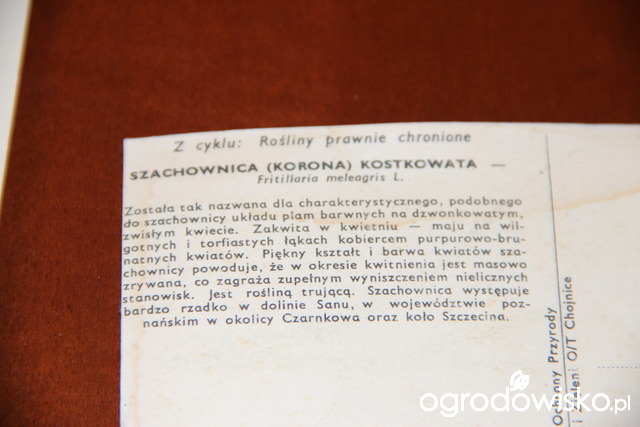 Z cyklu: Rośliny prawnie chronione
SZACHOWNICA (KORONA) KOSTKOWATA —
Fritillaria meleagris L.
Została tak nazwana dla charakterystycznego, podobnego
do szachownicy układu plam barwnych na dzwonkowatym,
zwisłym kwiecie. Zakwita w kwietniu — maju na wil-
gotnych i torfiastych łąkach kobiercem purpurowo-bru-
natnych kwiatów. Piękny kształt i barwa kwiatów sza-
chownicy powoduje, że w okresie kwitnienia jest masowo
zrywana, co zagraża zupełnym wyniszczeniem nielicznych
stanowisk. Jest rośliną trującą. Szachownica występuje
bardzo rzadko w dolinie Sanu, w województwie poz-
nańskim w okolicy Czarnkowa oraz koło Szczecina.
Ochrony Przyrody
O/T Chojnice
ogrodowisko.pl